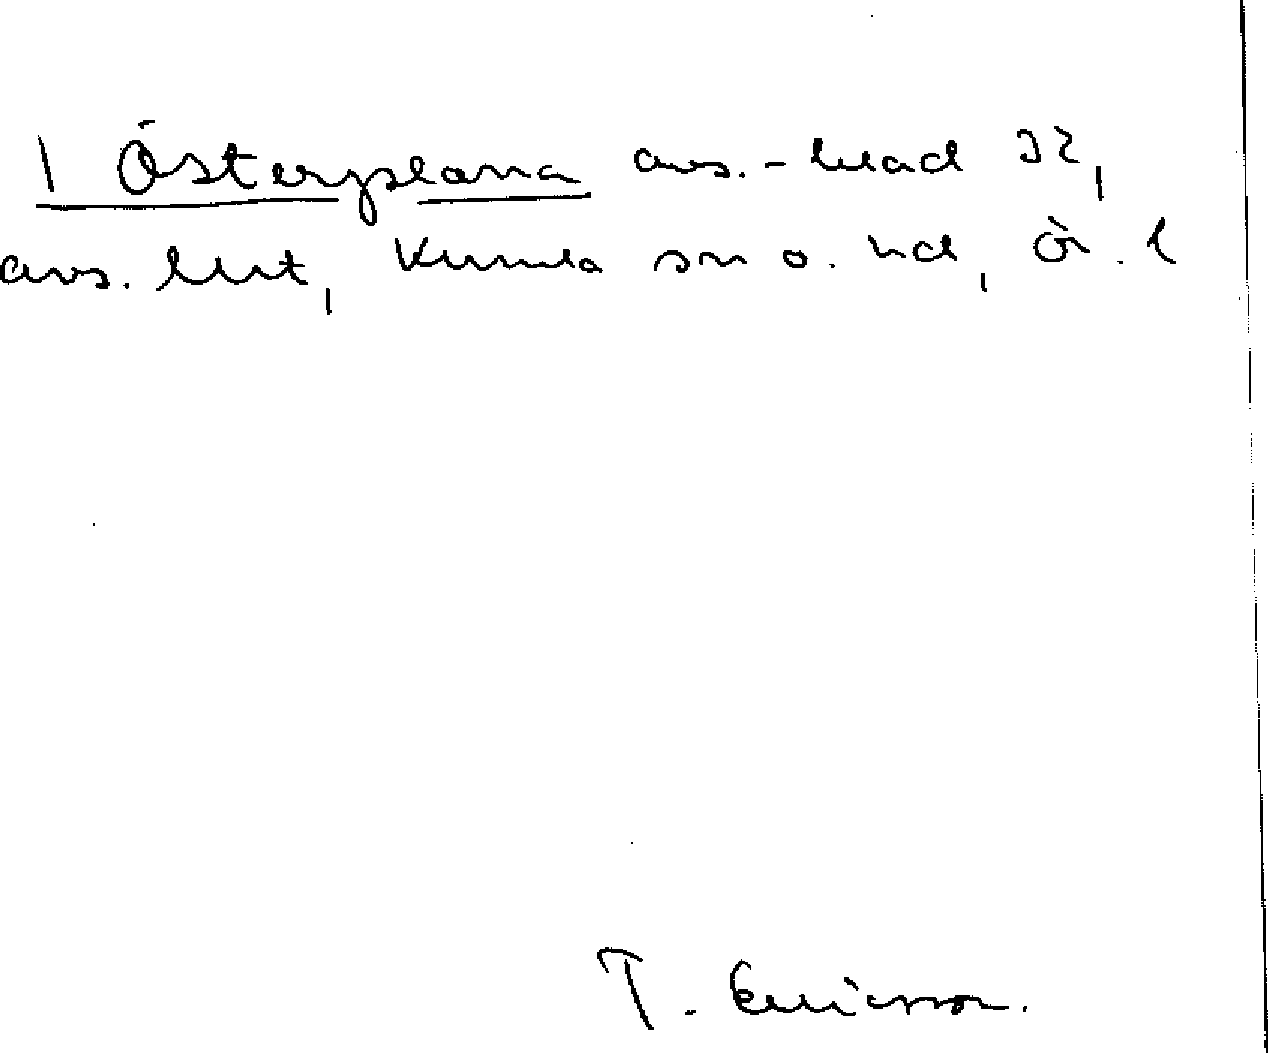 1 Österplana avs.-blad 32,
avs. Mut, Kumla sn o. hd, Ör. l
T. Ericsson.